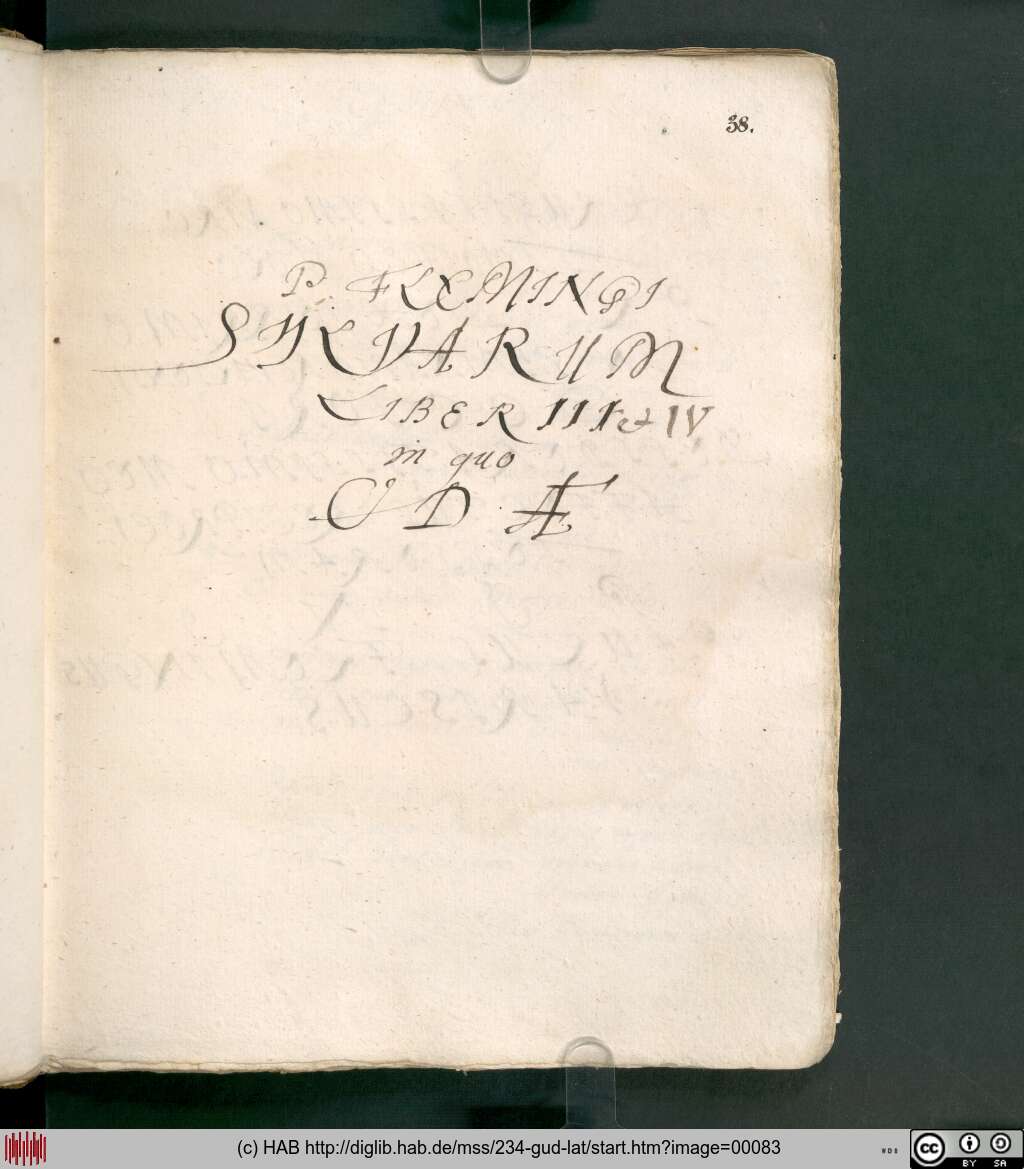 38.
P. FLEMINGI
SYLVARUM
LIBER III et IV
in quo
ODÆ
(c) HAB http://diglib.hab.de/mss/234-gud-lat/start.htm?image=00083
cc
BY SA